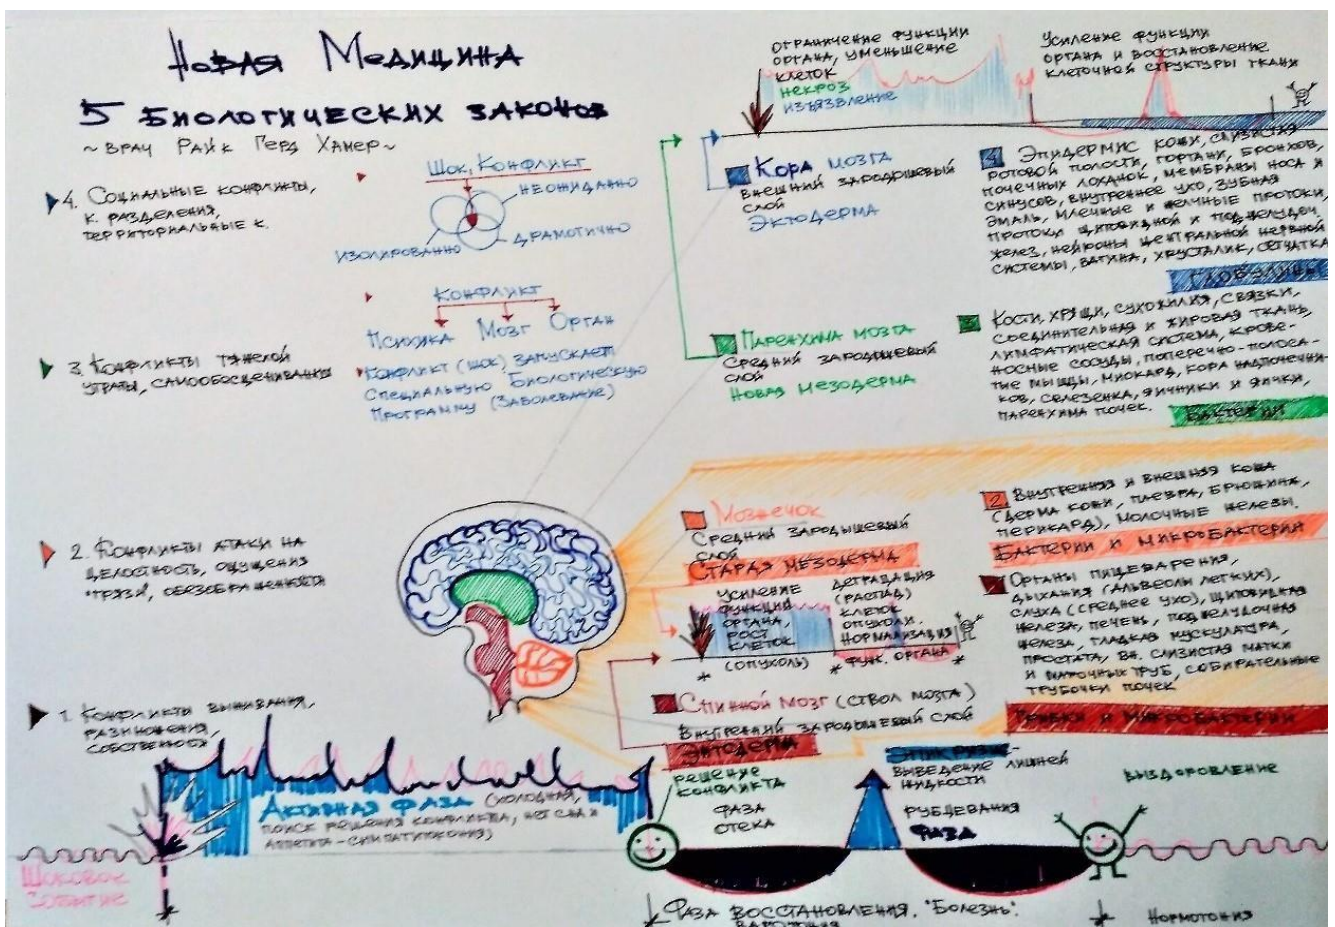 Новая Медицина
5 Биологических законов
~ врач Райк Герд Хамер ~
4. Социальные конфликты,
к. разделения,
территориальные к.
Шок, Конфликт
неожиданно
драматично
изолированно
Конфликт
Психика Мозг Орган
Конфликт (шок) запускает
Специальную Биологическую
Программу (Заболевание)
3. Конфликты тяжелой
утраты, самообесценивания
2. Конфликты атаки на
целостность, ощущения
"грязи", обезображенности
1. Конфликты выживания,
размножения,
собственности
ограничение функции
органа, уменьшение
клеток
некроз
изъязвление
Усиление функции
органа и восстановление
клеточной структуры ткани
Кора мозга
внешний зародышевый
слой
Эктодерма
4. Эпидермис кожи, слизистая
ротовой полости, гортани, бронхов,
почечных лоханок, мембраны носа и
синусов, внутреннее ухо, зубная
эмаль, млечные и желчные протоки,
протоки щитовидной и поджелудоч.
желез, нейроны центральной нервной
системы, вагина, хрусталик, сетчатка
Глобулины
Паренхима мозга
Средний зародышевый
слой
Новая мезодерма
3. Кости, хрящи, сухожилия, связки,
соединительная и жировая ткань,
лимфатическая система, крове-
носные сосуды, поперечно-полоса-
тые мышцы, миокард, кора надпочечни-
ков, селезенка, яичники и яички,
паренхима почек.
Бактерии
Мозжечок
Средний зародышевый
слой
Старая мезодерма
2. Внутренняя и внешняя кожа
(дерма кожи, плевра, брюшина,
перикард), молочные железы.
Бактерии и микробактерии
Усиление
функции
органа,
рост
клеток
(опухоль)
деградация
(распад)
клеток
опухоли.
нормализация
фун. органа
Органы пищеварения,
дыхания (альвеолы легких),
слуха (среднее ухо), щитовидная
железа, печень, поджелудочная
железа, гладкая мускулатура,
простата, вн. слизистая матки
и маточных труб, собирательные
трубочки почек
Грибки и микробактерии
Спинной мозг (ствол мозга)
Внутренний зародышевый слой
Энтодерма
Активная фаза (холодная,
поиск решения конфликта, нет сна и
аппетита - симпатикотония)
Шоковое
событие
решение
конфликта
фаза
отека
Эпикризис -
выведение лишней
жидкости
рубцевания
фаза
выздоровление
Фаза восстановления. "Болезнь".
Ваготония
Нормотония